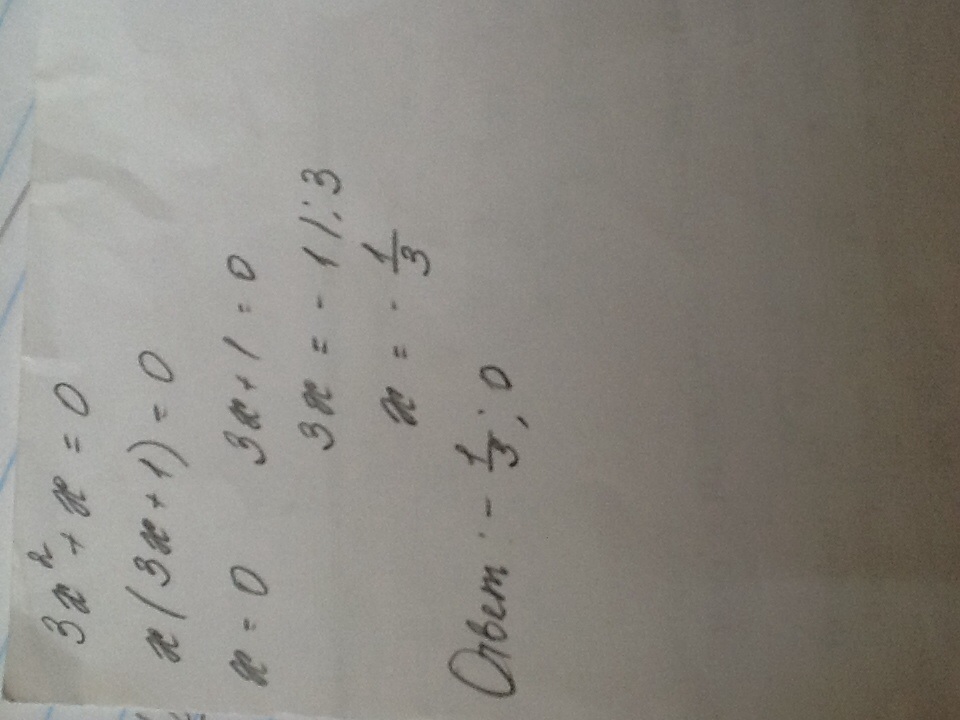 3x² + x = 0
x(3x+1) = 0
x = 0 3x+1 = 0
3x = -1 |:3
x = - 1/3
Ответ: - 1/3; 0